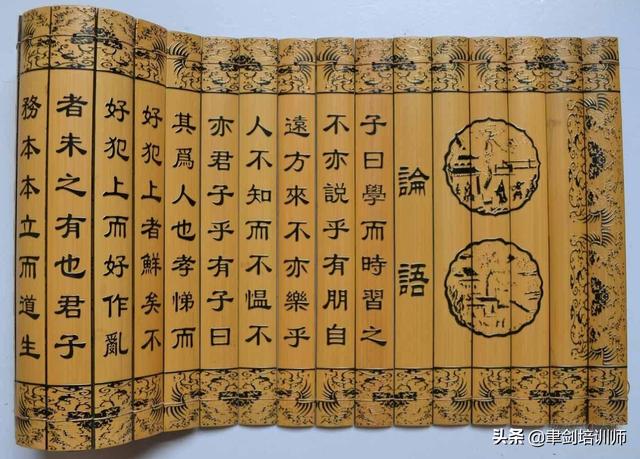 論語
子曰學而時習之
不亦説乎有朋自
遠方來不亦樂乎
人不知而不愠不
亦君子乎有子曰
其爲人也孝悌而
好犯上者鮮矣不
好犯上而好作亂
者未之有也君子
務本本立而道生
头条 @聿剑培训师